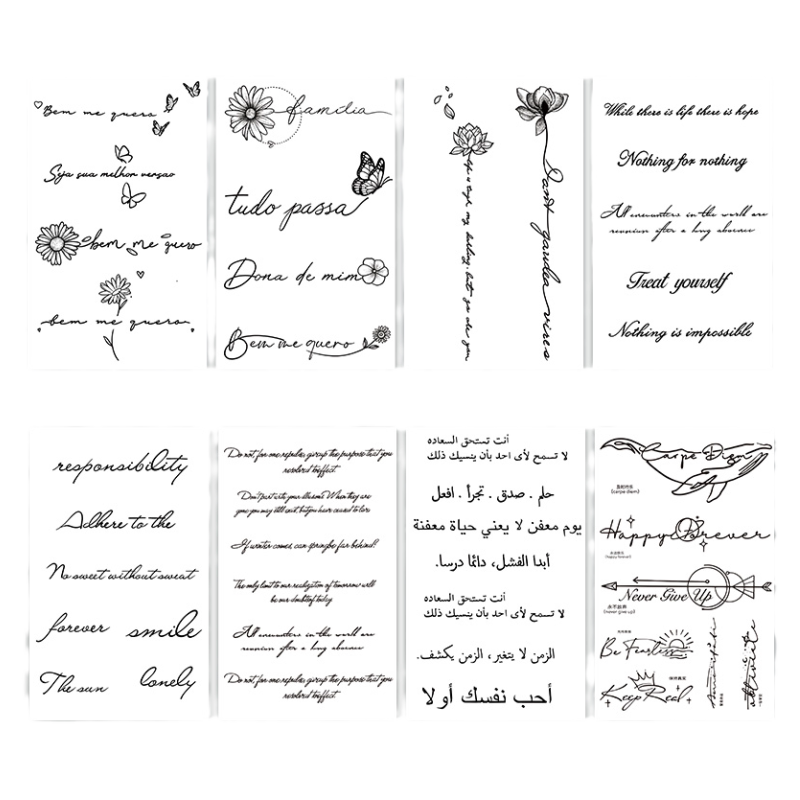 Bem me quero
Seja sua melhor versão
bem me quero
bem me quero
família
tudo passa
Dona de mim
Bem me quero
life is tough my darling, but so are you
While there is life there is hope
Nothing for nothing
All encounters in the world are
reunion after a long absence
Treat yourself
Nothing is impossible
responsibility
Adhere to the
No sweet without sweat
forever
smile
The sun
lonely
Do not, for one repulse, give up the purpose that you
resolved to effect
Don't part with your illusions. When they are
gone you may still exist, but you have ceased to live
If winter comes, can spring be far behind?
The only limit to our realization of tomorrow will
be our doubts of today
All encounters in the world are
reunion after a long absence
Do not, for one repulse, give up the purpose that you
resolved to effect
أنت تستحق السعاده
لا تسمح لأى احد بأن ينسيك ذلك
حلم . صدق . تجرأ . افعل
يوم معفن لا يعني حياة معفنة
أبدا الفشل، دائما درسا.
أنت تستحق السعاده
لا تسمح لأى احد بأن ينسيك ذلك
الزمن لا يتغير، الزمن يكشف.
أحب نفسك أولا
Carpe Diem
(carpe diem)
Happy Forever
(Happy forever)
Never Give Up
永不放弃
(never give up)
Be Fearless
Keep Real